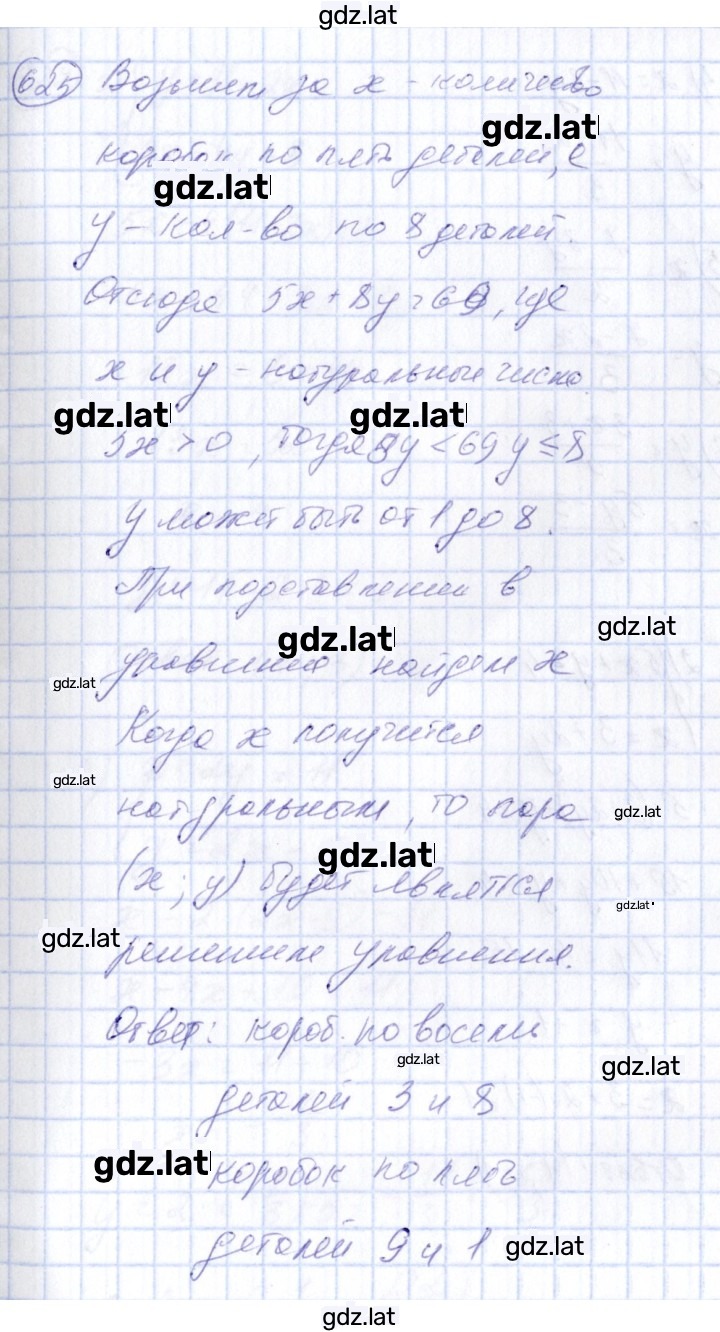 gdz.lat
625 Возьмем за x - количество
gdz.lat
коробок по пять деталей, а
gdz.lat
y - кол-во по 8 деталей.
Отсюда 5x + 8y = 69, где
x и y - натуральные числа.
gdz.lat gdz.lat
5x > 0, тогда 8y < 69 y ≤ 8
y может быть от 1 до 8.
При подставлении в
gdz.lat gdz.lat
уравнение найдем x.
gdz.lat
Когда x получится
gdz.lat
натуральным, то пара gdz.lat
gdz.lat
(x; y) будет являться
gdz.lat
gdz.lat
решением уравнения.
Ответ: короб. по восемь
gdz.lat gdz.lat
деталей 3 и 8
gdz.lat
коробок по пять
деталей 9 и 1 gdz.lat
gdz.lat